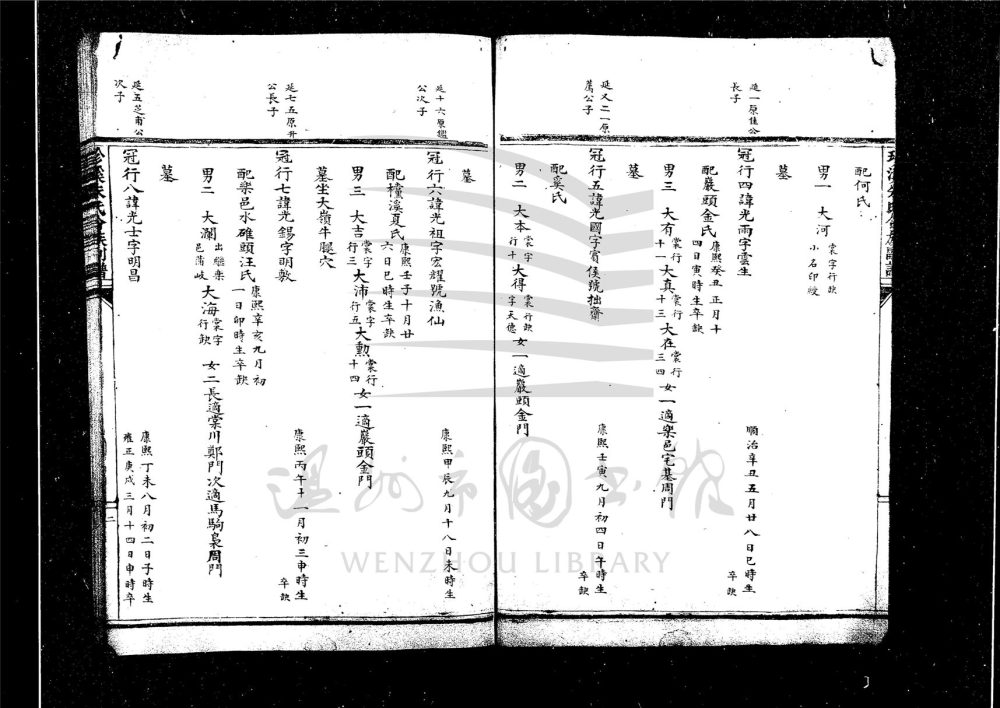 配何氏
男一 大河 裳字行缺 小名印嵏
墓
延一原佳公長子
冠行四諱光雨字雲生 順治辛丑五月廿八日巳時生 卒缺
配嚴頭金氏 康熙癸丑正月十四日寅時生卒缺
男三 大有 裳行十一 大真 裳行十三 大在 裳行三四 女一適樂邑宅基周門
墓
延又二原 公子
冠行五諱光國字賓侯號拙齋 康熙壬寅九月初四日午時生 卒缺
配奚氏
男二 大本 裳字行十 大得 裳行缺字天德 女一適嚴頭金門
墓
延十六原 公次子
冠行六諱光祖字宏耀號漁仙 康熙甲辰九月十八日未時生
配 溪夏氏 康熙壬子十月廿六日巳時生卒缺
男三 大吉 裳字行三 大沛 裳字行五 大勲 裳行十四 女一適嚴頭金門
墓坐大嶺牛腿穴
延七五原升公長子
冠行七諱光錫字明敷 康熙丙午十一月初三申時生 卒缺
配樂邑水碓頭汪氏 康熙辛亥九月初一日卯時生卒缺
男二 大瀾 出繼樂邑蒲岐 大海 裳字行缺 女二長適棠川鄭門次適馬 周門
墓
延五芝甫公次子
冠行八諱光士字明昌 康熙丁未八月初二日子時生 雍正庚戌三月十四日申時卒
WENZHOU LIBRARY
温州市圖书館